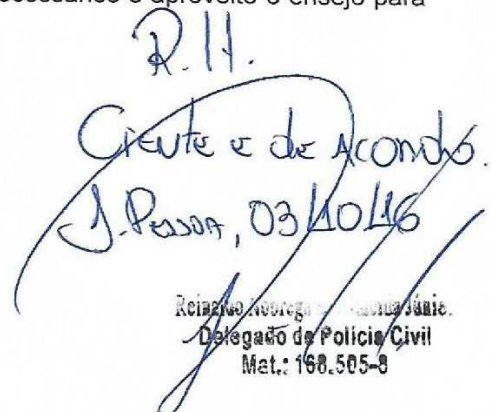 e aproveito o ensejo para
R.H.
Ciente e de Acordo.
J. Pessoa, 03/10/16
Reinaldo Nobrega
Delegado de Polícia Civil
Mat.: 168.505-8